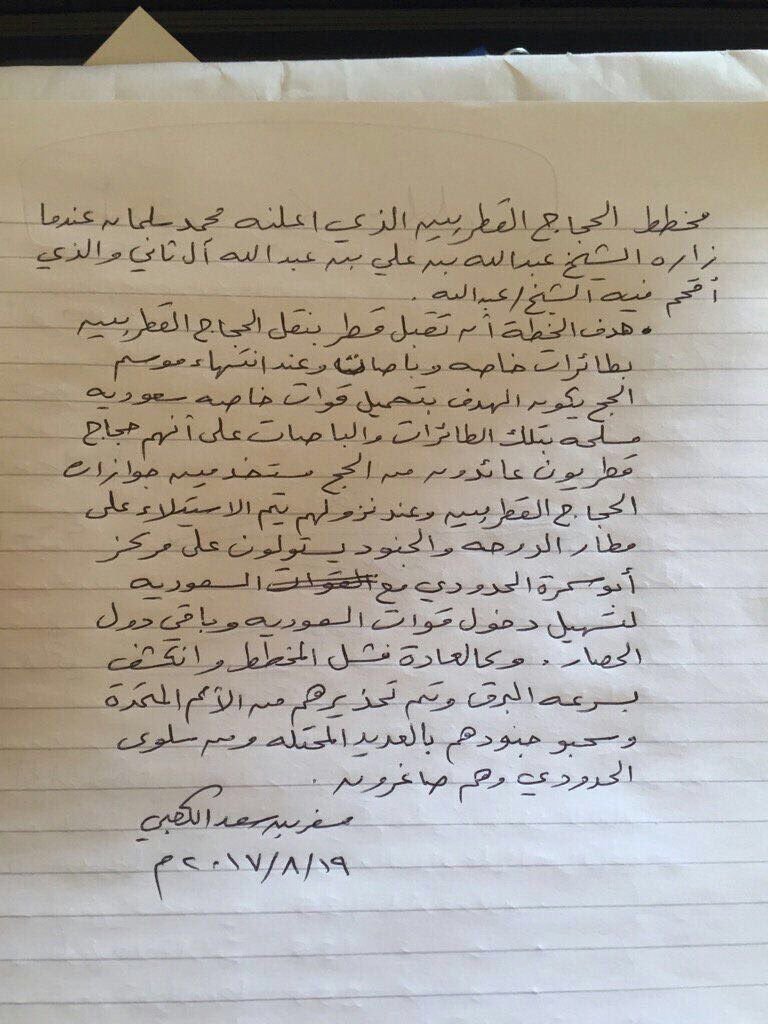 مخطط الحجاج القطريين الذي اعلنه محمد سلمان عندما
زاره الشيخ عبدالله بن علي بن عبدالله آل ثاني والذي
أقحم فيه الشيخ/عبدالله .
• هدف الخطة أن تقبل قطر بنقل الحجاج القطريين
بطائرات خاصه وباصات وعند انتهاء موسم
الحج يكون الهدف بتحميل قوات خاصه سعوديه
مسلحه بتلك الطائرات والباصات على أنهم حجاج
قطريون عائدون من الحج مستخدمين جوازات
الحجاج القطريين وعند نزولهم يتم الاستيلاء على
مطار الدوحه والجنود يستولون على مركز
أبوسمرة الحدودي مع القوات السعوديه
لتسهيل دخول قوات السعوديه وباقي دول
الحصار . وكالعادة فشل المخطط وانكشف
بسرعه البرق وتم تحذيرهم من الأمم المتحدة
وسحبو جنودهم بالعديد المحتله ومن سلوى
الحدودي وهم صاغرون .
مسفر بن سعد الكعبي
٢٠١٧/٨/١٩ م